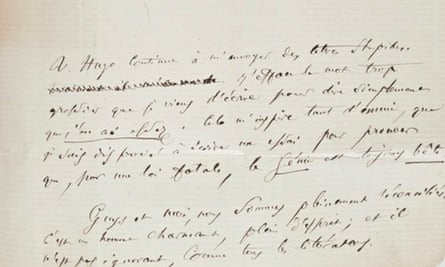 V. Hugo continue à m'envoyer des lettres stupides.
J'efface le mot trop
grossier que je viens d'écrire pour dire simplement
que j'en ai assez. Cela m'inspire tant d'ennui, que
je suis disposé à écrire un essai pour prouver
que, par une loi fatale, le Génie est toujours bête
Guys et moi, nous sommes pleinement réconciliés.
C'est un homme charmant, plein d'esprit; et il
n'est pas ignorant, comme tous les littérateurs.